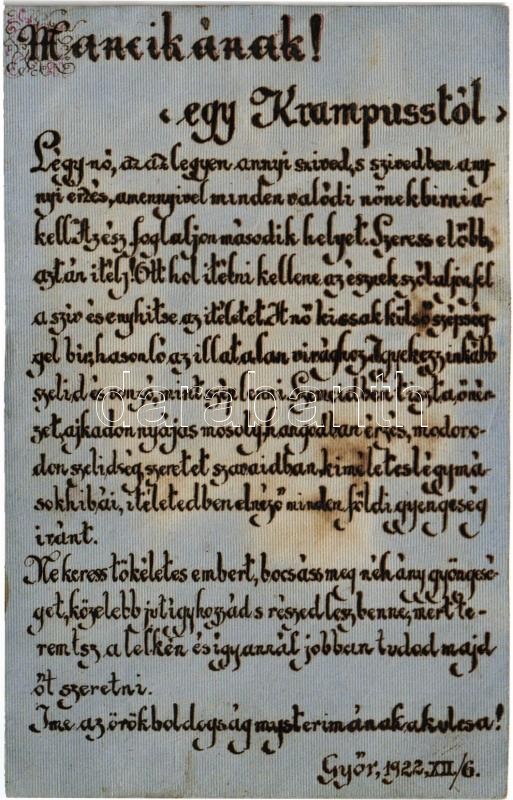 Mancikának!
‹ egy Krampusstól ›
Légy nő, azaz legyen annyi szived, s szivedben any-
nyi érzés, amennyivel minden valódi nőnek birnia-
kell. Az ész foglaljon második helyet. Szeress előbb,
aztán itélj! Ott hol itélni kellene az észnek szólaljon fel
a sziv és enyhitse az itéletet. A nő ki csak külső szépség-
gel bir, hasonló az illatalan virághoz. Igyekezz inkább
szelid és lenni. Szemeidben tiszta önér-
zet, ajkadon nyájas mosoly, hangodban érzés, modoro-
don szelidség, szeretet szavaidban, kiméletes légy má-
sok hibái, itéletedben elnéző minden földi gyengeség
iránt.
Ne keress tökéletes embert, bocsáss meg néhány gyöngesé-
get, közelebb jut igy hozzád s részed lesz benne, mert te-
remtsz a lelkén és igy annál jobban tudod majd
őt szeretni.
Ime az örök boldogság mysteriumának a kulcsa!
Győr, 1922. XII/6.
darabanth